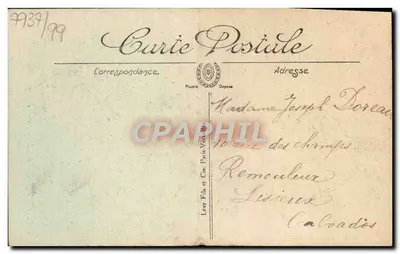 7937/99
Carte Postale
Correspondance
Adresse
Modèle Déposé
Madame Joseph Doreau
CPAPHIL
rue des champs
Remouleur
Lisieux
Calvados
Lévy Fils et Cie, Paris